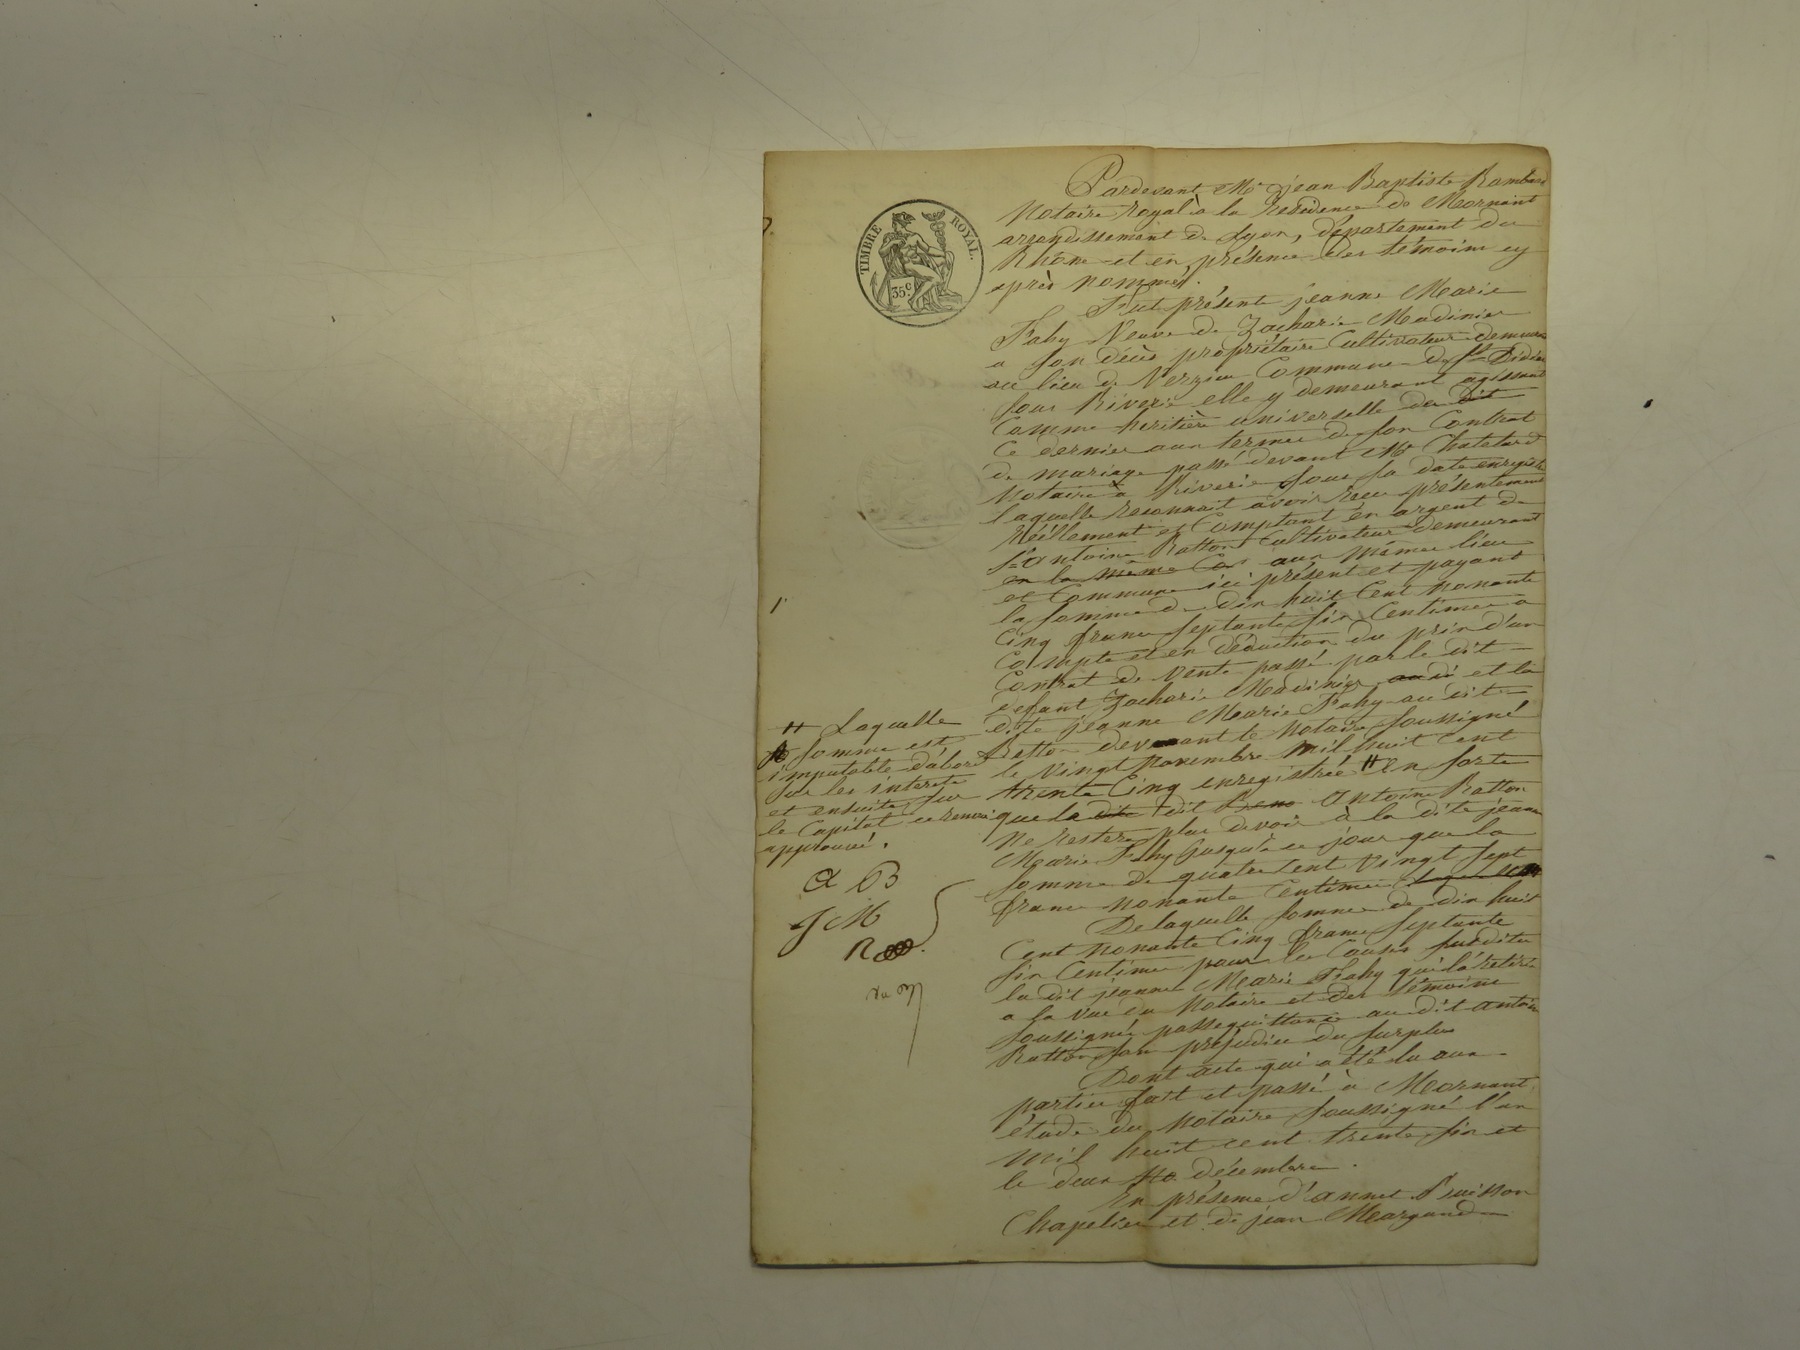 TIMBRE ROYAL.
35c
Pardevant Me jean Baptiste Rambaud
Notaire royal à la Residence de Mornant
arrondissement de Lyon, département du
Rhône et en présence des témoins cy
après nommés.
Fut présente jeanne Marie
Fahy Veuve de Zacharie Madinier
a son décès propriétaire Cultivateur demeurant
au lieu de Verzieu Commune de St Didier
sous Riverie elle y demeurant agissant
Comme héritière universelle du dit
Ce dernier aux termes de son Contrat
de mariage passé devant Me Chatelard
Notaire à Riverie sous sa date enregistré
laquelle reconnait avoir reçu présentement
réellement et Comptant en argent de
sr antoine Ratton Cultivateur demeurant
en la même Co aux mêmes lieu
et Commune ici présent et payant
la somme de dix huit Cent nonante
Cinq francs septante six Centimes a
Compte et en déduction du prix d'un
Contrat de vente passé par le dit
defunt Zacharie Madinier et la
dite jeanne Marie Fahy au dit
Ratton devant le Notaire soussigné
le vingt novembre mil huit Cent
trente Cinq enregistrée # en sorte
que la dite dit antoine Ratton
ne restera plus devoir à la dite jeanne
Marie Fahy jusqu'à ce jour que la
somme de quatre Cent vingt sept
francs nonante Centimes
De laquelle somme de dix huit
Cent nonante Cinq francs septante
six Centimes pour les Causes susdites
la dit jeanne Marie Fahy qui l'a retirée
a la vue du Notaire et des témoins
soussignés passe quittance au dit antoine
Ratton sans préjudice du surplus
Dont acte qui a été lu aux
parties fait et passé à Mornant
étude du Notaire soussigné l'an
mil huit cent trente six et
le deux décembre.
En présence d'annet Buisson
Chapelier et de jean Margand
# Laquelle
somme est
imputable d'abord
sur les intérêts
et ensuite sur
le Capital ce renvoi
approuvé.
a B
J M
R